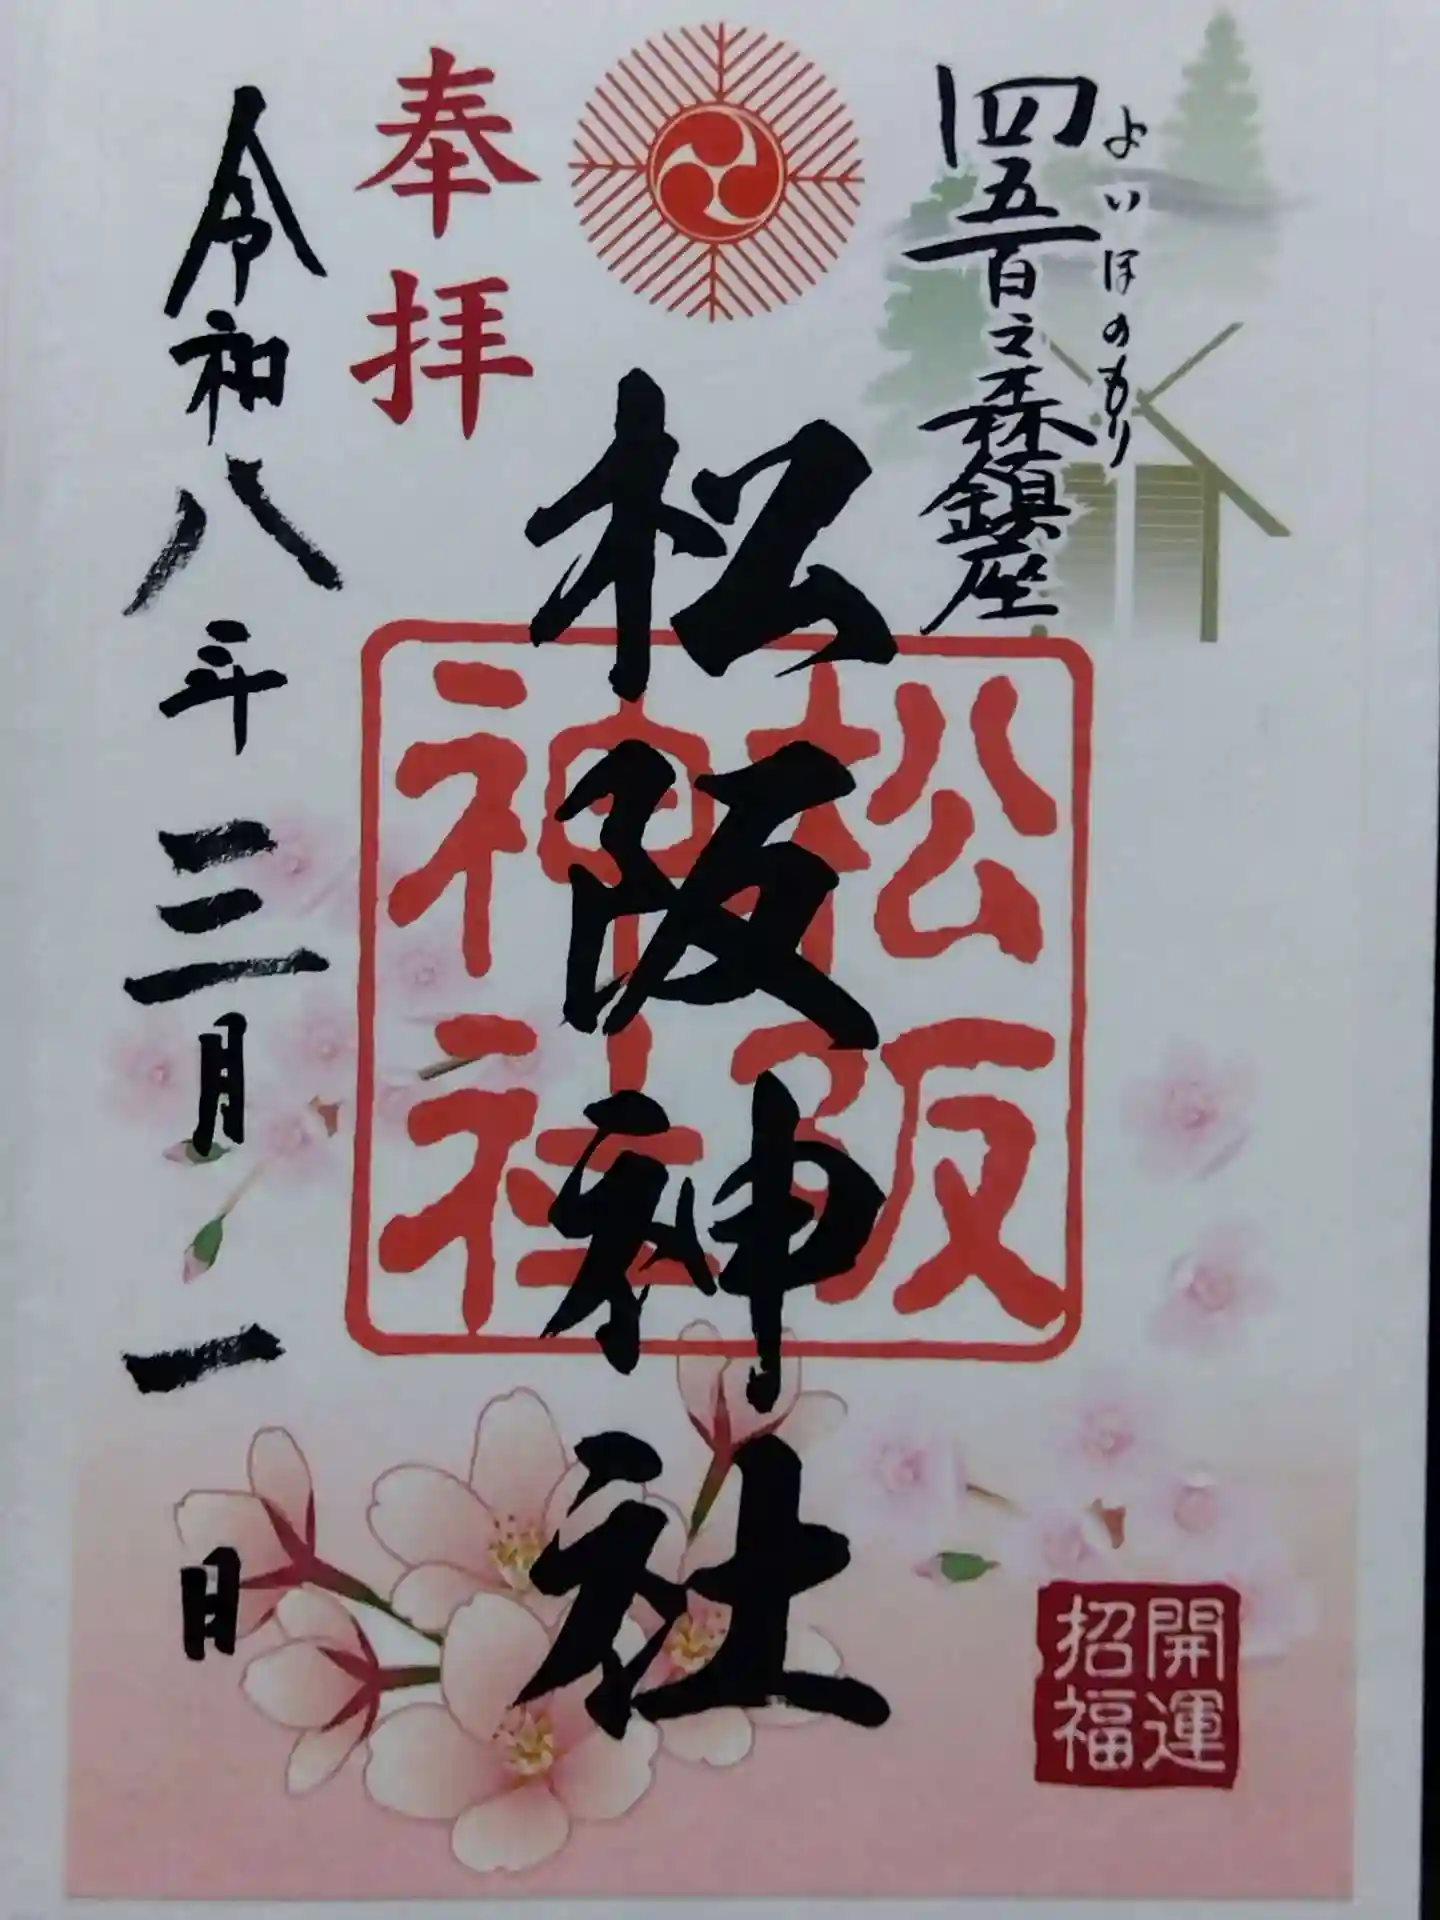 四五百之森鎮座
よいほのもり
松阪神社
松阪
神社
奉拝
令和八年三月一日
開運
招福